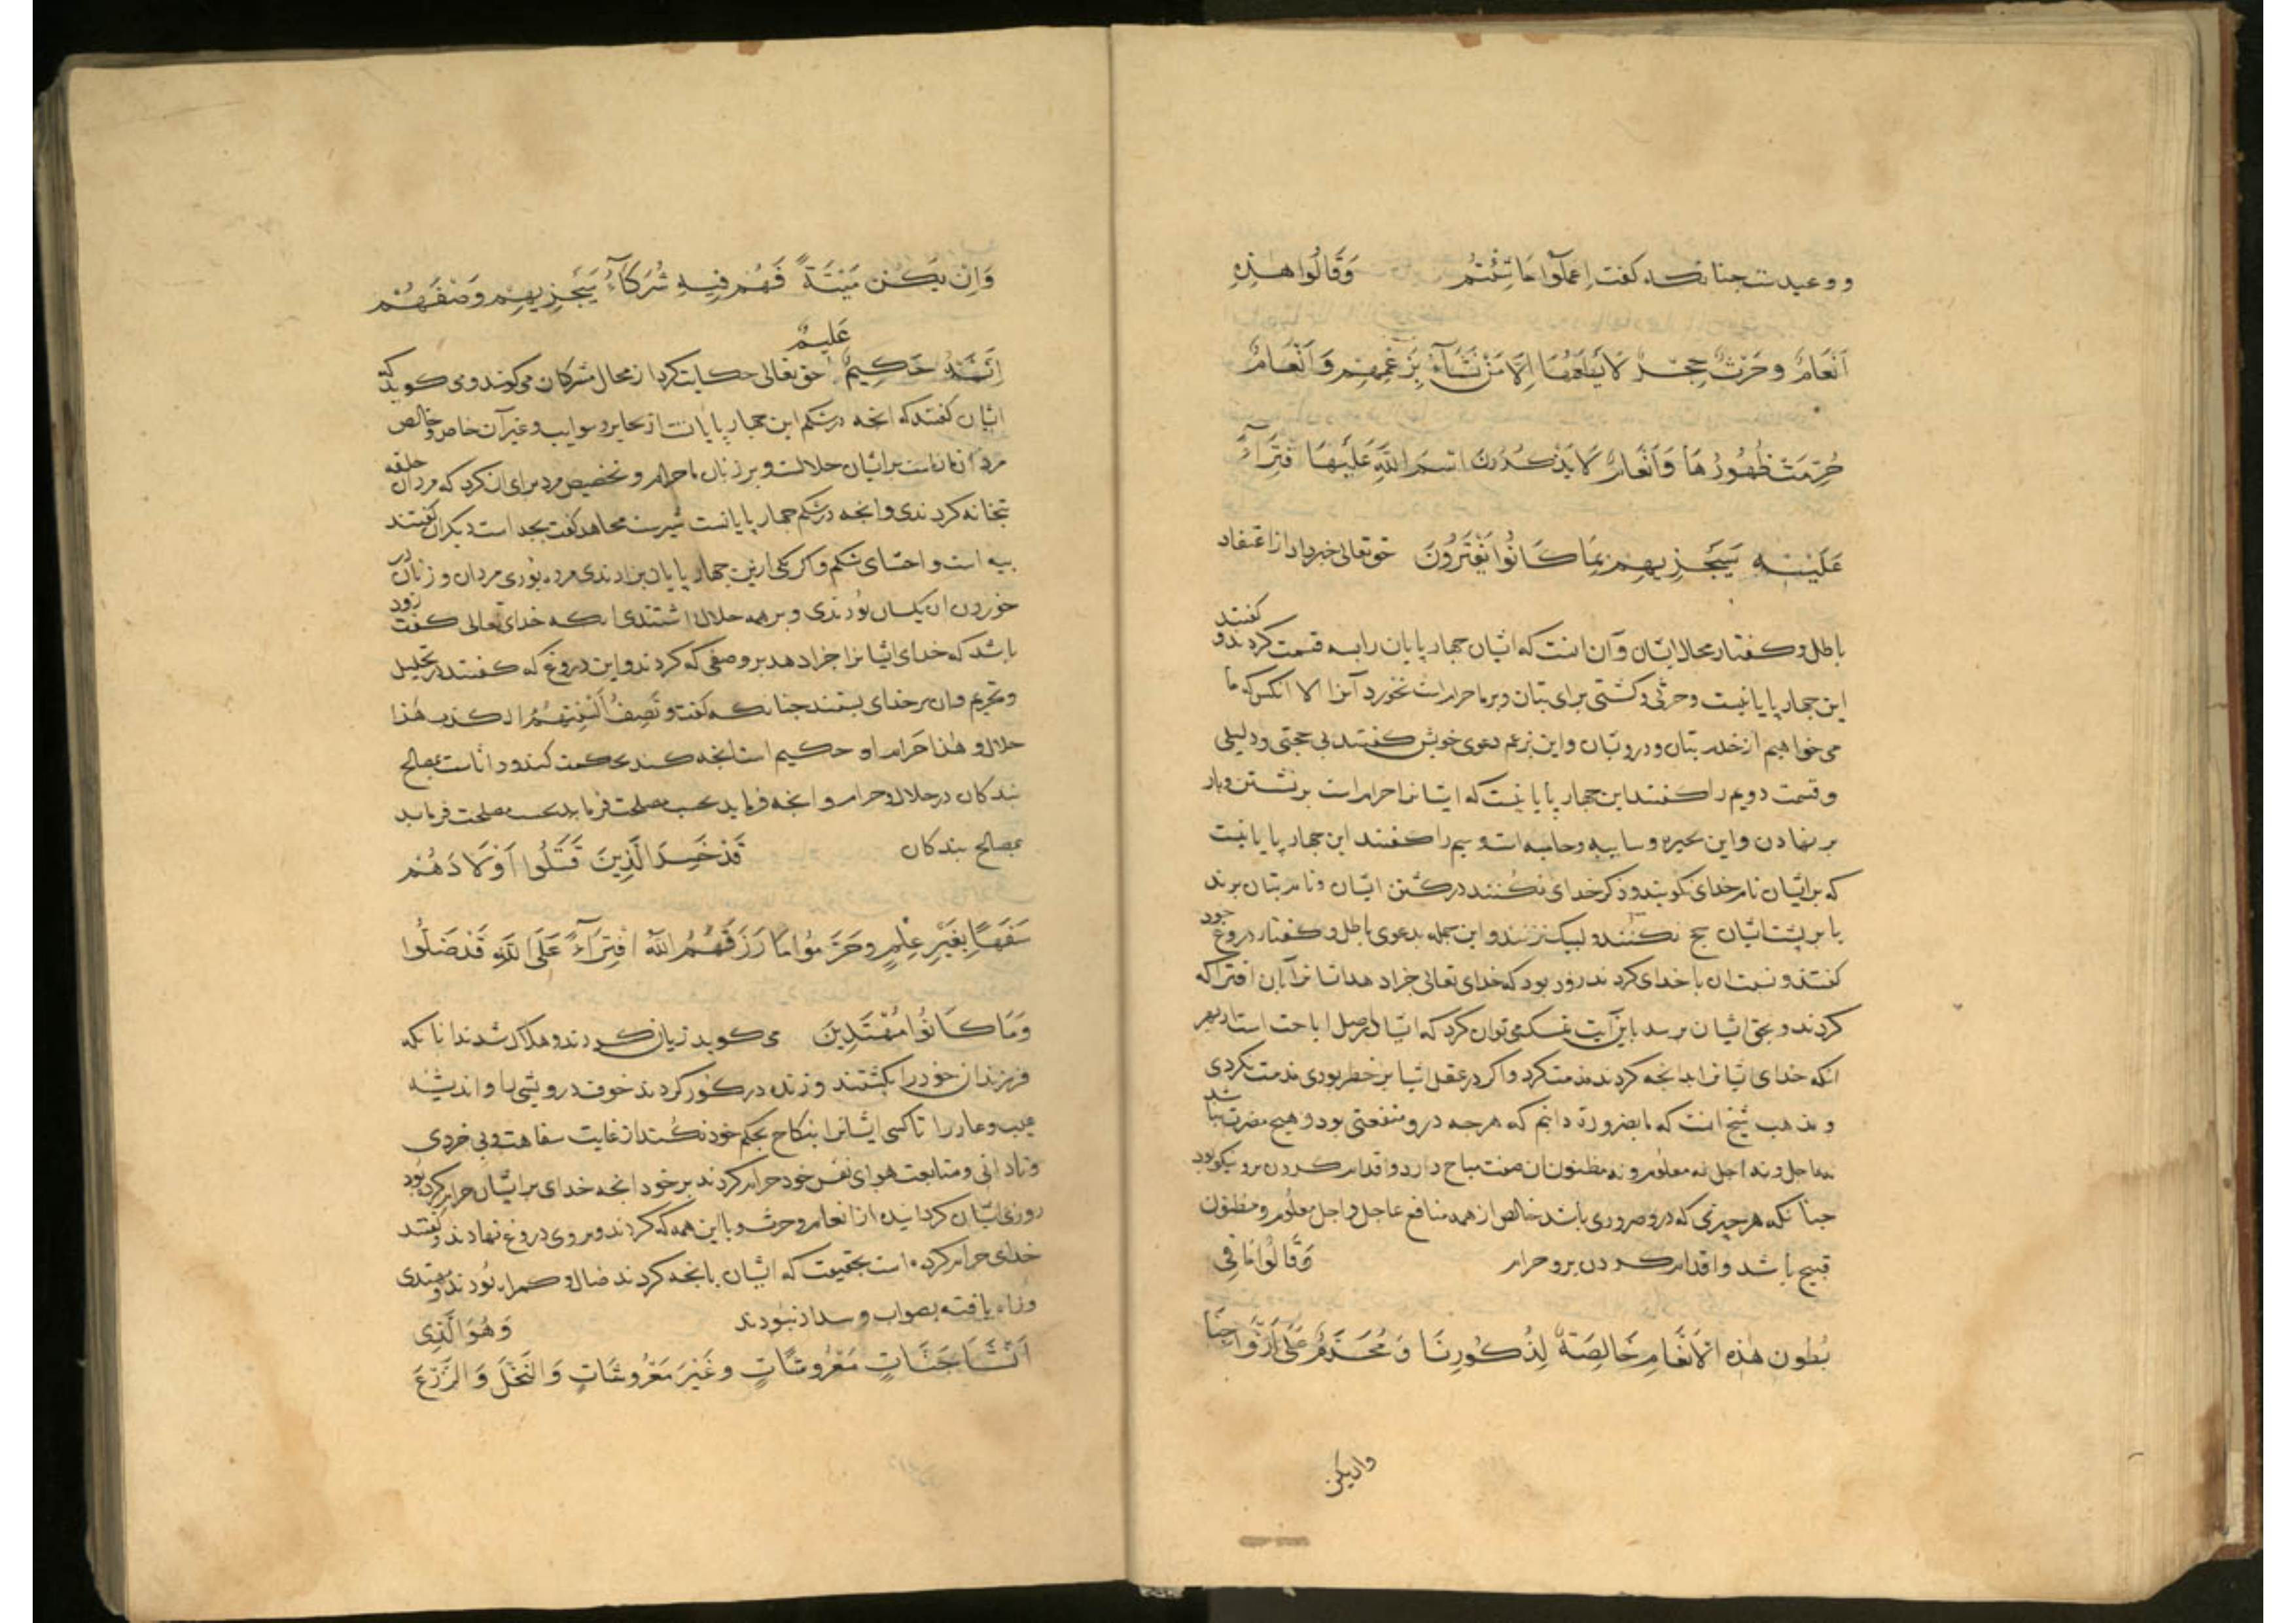 و وعیدست جنانکه کفت اِعمَلُوا مَا شِئتُم وَقَالُوا هٰذِهِ
اَنْعَامٌ وحَرْثٌ حِجْرٌ لَا یَطْعَمُهَا اِلَّا مَنْ نَشَآءُ بِزَعْمِهِم وَاَنْعَامٌ
حُرِّمَتْ ظُهُورُهَا وَاَنْعَامٌ لَا یَذْكُرُونَ اسْمَ اللّٰهِ عَلَیْهَا فْتِرَآءً
عَلَیْهِ سَیَجْزِیهِم بِمَا كَانُوا یَفْتَرُونَ حقتعالی خبر داد از اعتقاد
باطل و کفتار محال ایشان و آن انست که ایشان جهار پایان را بسه قسمت کردند و کفتند
این جهار پایانیست و حرثی و کشتی برای بتان و بر ما حرام است نخورد آنرا الا انکس که ما
می خواهیم از خدم بتان و درو بتان و این بزعم دعوی خویش کفتند بی حجتی و دلیلی
و قسمت دویم را کفتند این جهار پایانیست که ایشانرا حرام است بر نشستن و بار
بر نهادن و این بحیره و سایبه و حامیه است و سیم را کفتند این جهار پایانیست
که بر ایشان نام خدای نکویند و ذکر خدای نکنند در کشتن ایشان و نام بتان برند
یا بر پشت ایشان حج نکنند و لبیک نزنند و این جمله بدعوی باطل و کفتار دروغ خود
کفتند و نسبت ان با خدای کردند زود بود که خدای تعالی جزا دهد ایشانرا بآن افترا که
کردند و بحق ایشان برسد باین آیت تمسک می توان کرد که اشیا در اصل اباحت است از بهر
انکه خدای ایشانرا بدانجه کردند مذمت کرد و اکر در عقل اشیا بر خطر بودی مذمت نکردی
و مذهب شیخ انست که ما بضرورة دانیم که هرجه درو منفعتی بود و هیچ مضرت نباشد
نه عاجل و نه اجل نه معلوم و نه مظنون ان صفت مباح دارد و اقدام کردن برو نیکو بود
جنانکه هر جیزی که درو ضروری باشد خالص از همه منافع عاجل و اجل معلوم و مظنون
قبیح باشد و اقدام کردن برو حرام وَقَالُوا مَا فِی
بُطُونِ هٰذِه الْاَنْعَامِ خَالِصَةٌ لِذُكُورِنَا وَمُحَرَّمٌ عَلٰی اَزْوَاجِنَا
وان یکن
وَاِنْ یَكُنْ مَیْتَةً فَهُمْ فِیهِ شُرَكَآءُ سَیَجْزِیهِمْ وَصْفَهُمْ
اِنَّهُ حَكِیمٌ عَلیمٌ حق تعالی حکایت کرد از محال مشرکان می کوند و می کوید که
ایشان کفتند که انجه در شکم این جهار پایانست از بحایر و سوایب و غیر آن خاص و خالص
مردان ماراست بر ایشان حلالست و بر زنان ما حرام و تخصیص مرد برای ان کرد که مردان خلقه
بتخانه کردندی و انجه در شکم جهار پایانست شیرست مجاهد کفت بجه است دیکران کفتند
بیه است و احشای شکم و اکر یکی ازین جهار پایان بزادندی مرده بودی مردان و زنان در
خوردن ان یکسان بودندی و بر همه حلال داشتندی انکه خدای تعالی کفت زود
باشد که خدای ایشانرا جزا دهد بر وصفی که کردند و این دروغ که کفتند در تحلیل
و تحریم و ان بر خدای بستند جنانکه کفت و تَصِفُ اَلْسِنَتُهُمُ الکذب هٰذا
حلال و هٰذا حَرام و او حکیم است انجه کند بحکمت کند و داناست بمصالح
بندکان در حلال و حرام و انجه فرماید بحسب مصلحت فرماید بحسب مصلحت فرماید
بمصالح بندکان قَدْ خَسِرَ الَّذِینَ قَتَلُوا اَوْلَادَهُمْ
سَفَهًا بِغَیْرِ عِلْمٍ وحَرَّمُوا مَا رَزَقَهُمُ اللّٰهُ افْتِرَآءً عَلَی اللّٰهِ قَدْ ضَلُّوا
وَمَا كَانُوا مُهْتَدِینَ می کوید زیان کردند و هلاک شدند انانکه
فرزندان خود را بکشتند و زنده در کور کردند خوف درویشی را و اندیشه
عیب و عار را تا کسی ایشانرا بنکاح بحکم خود نکند از غایت سفاهت و بی خردی
و نادانی و متابعت هوای نفس خود حرام کردند بر خود انجه خدای بر ایشان حرام نکرده بود
روزی ایشان کردانیده از انعام و حرث و با این همه که کردند و بروی دروغ نهادند و کفتند
خدای حرام کرده است بحقیقت که ایشان بانجه کردند ضال و کمراه بودند و مهتدی
و راه یافته بصواب و سداد نبودند وَهُوَ الَّذِی
اَنْشَأ جَنَّاتٍ مَعْرُوشَاتٍ وغَیْرَ مَعْرُوشَاتٍ وَالنَّخْلَ وَالزَّرْعَ